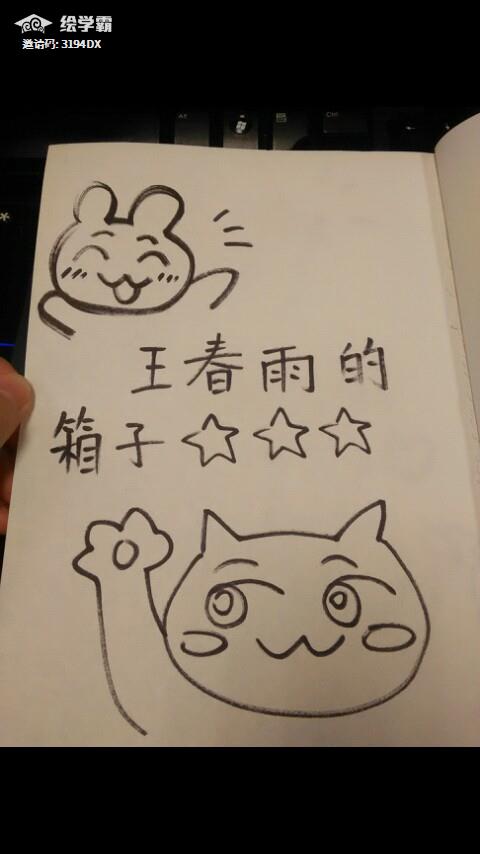 绘学霸
邀请码: 3194DX
王春雨的
箱子☆☆☆